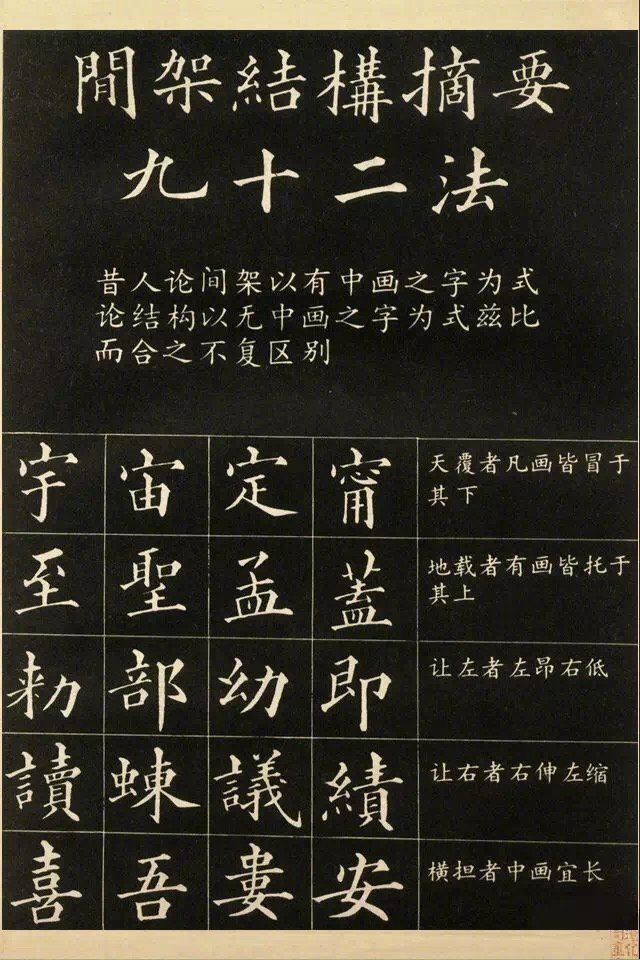 閒架結構摘要
九十二法
昔人论间架以有中画之字为式
论结构以无中画之字为式兹比
而合之不复区别
宇 宙 定 甯 天覆者凡画皆冒于
其下
至 聖 孟 蓋 地载者有画皆托于
其上
勅 部 幼 即 让左者左昂右低
讀 蝀 議 績 让右者右伸左缩
喜 吾 婁 安 横担者中画宜长